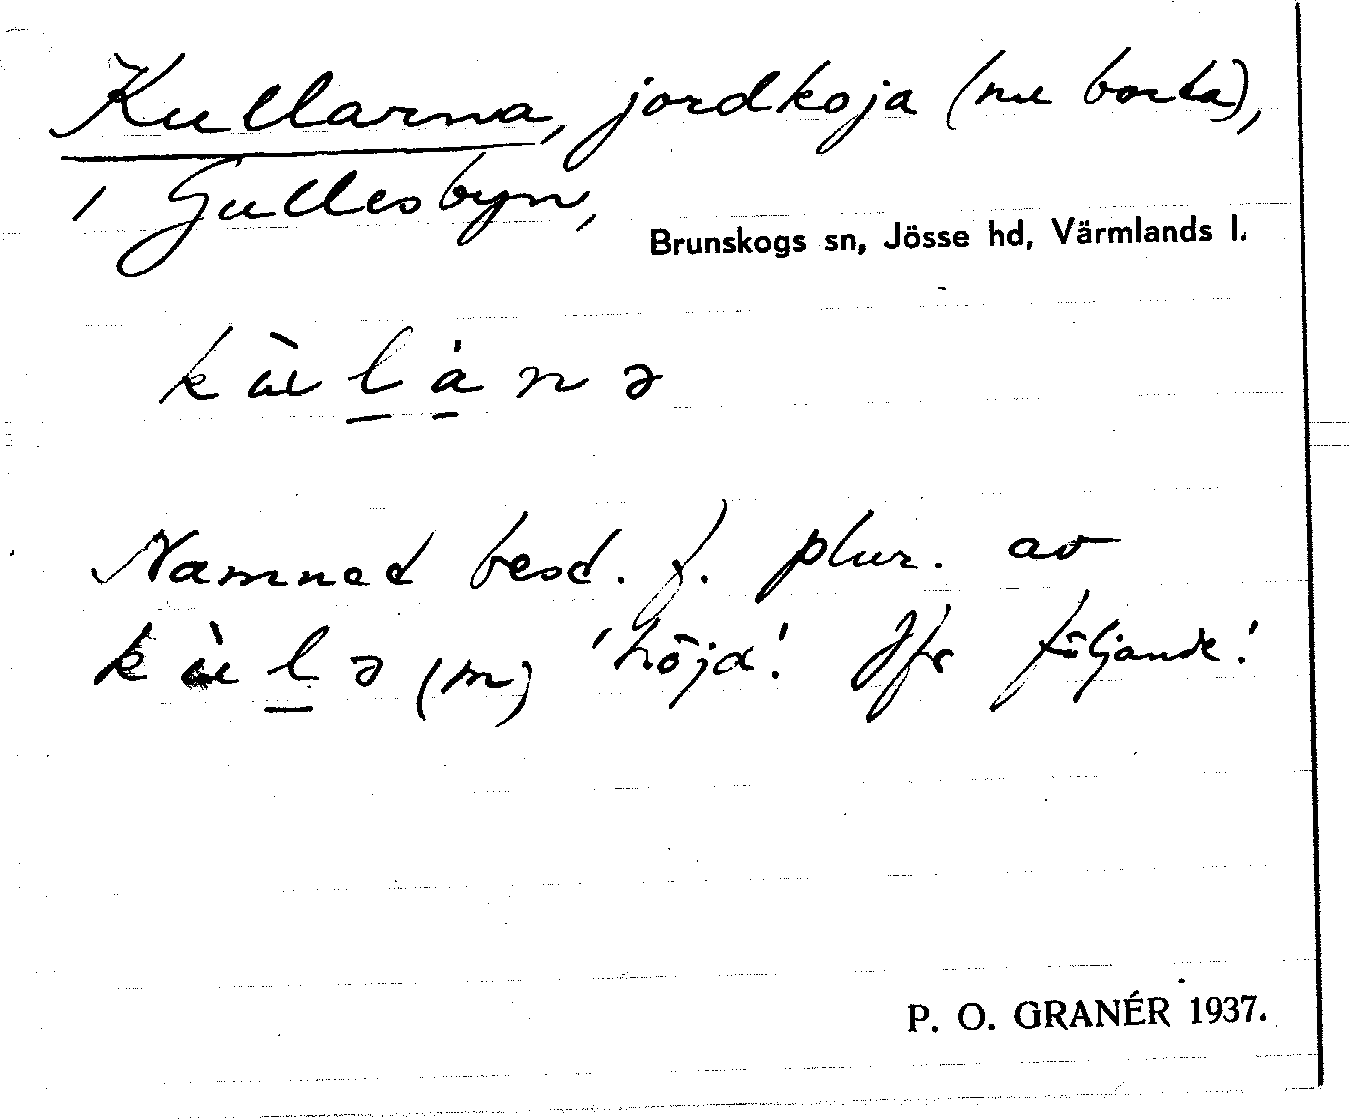 Kullarna, jordkoja (nu borta),
i Gullesbyn,
Brunskogs sn, Jösse hd, Värmlands l.
kùl̲a̲̍nə
Namnet best. f. plur. av
kùl̲ə (m) 'höjd'. Jfr följande!
P. O. GRANÉR 1937.